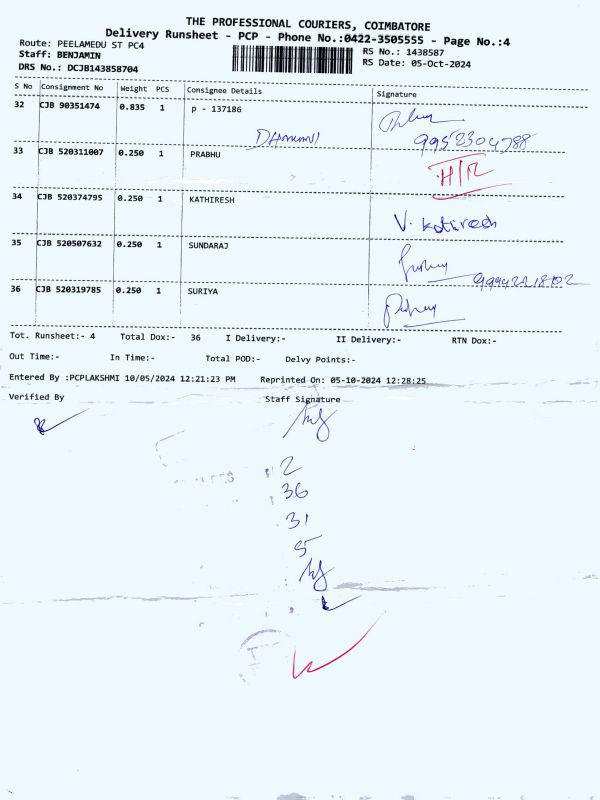 THE PROFESSIONAL COURIERS, COIMBATORE
Delivery Runsheet - PCP - Phone No.:0422-3505555 - Page No.:4
Route: PEELAMEDU ST PC4 RS No.: 1438587
Staff: BENJAMIN RS Date: 05-Oct-2024
DRS No.: DCJB143858704
S No Consignment No Weight PCS Consignee Details Signature
32 CJB 90351474 0.835 1 p - 137186
9952304788
33 CJB 520311007 0.250 1 PRABHU
34 CJB 520374795 0.250 1 KATHIRESH
V. Kathiresh
35 CJB 520507632 0.250 1 SUNDARAJ
36 CJB 520319785 0.250 1 SURIYA
Tot. Runsheet:- 4 Total Dox:- 36 I Delivery:- II Delivery:- RTN Dox:-
Out Time:- In Time:- Total POD:- Delvy Points:-
Entered By :PCPLAKSHMI 10/05/2024 12:21:23 PM Reprinted On: 05-10-2024 12:28:25
Verified By Staff Signature
2
36
31
5